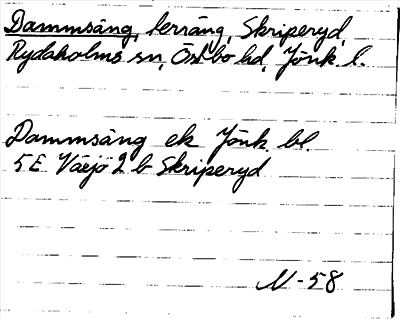 Dammsäng, terräng, Skriperyd,
Rydaholms sn, Östbo hd, Jönk. l.
Dammsäng ek Jönk. bl.
5E Växjö 2 b Skriperyd
M-58